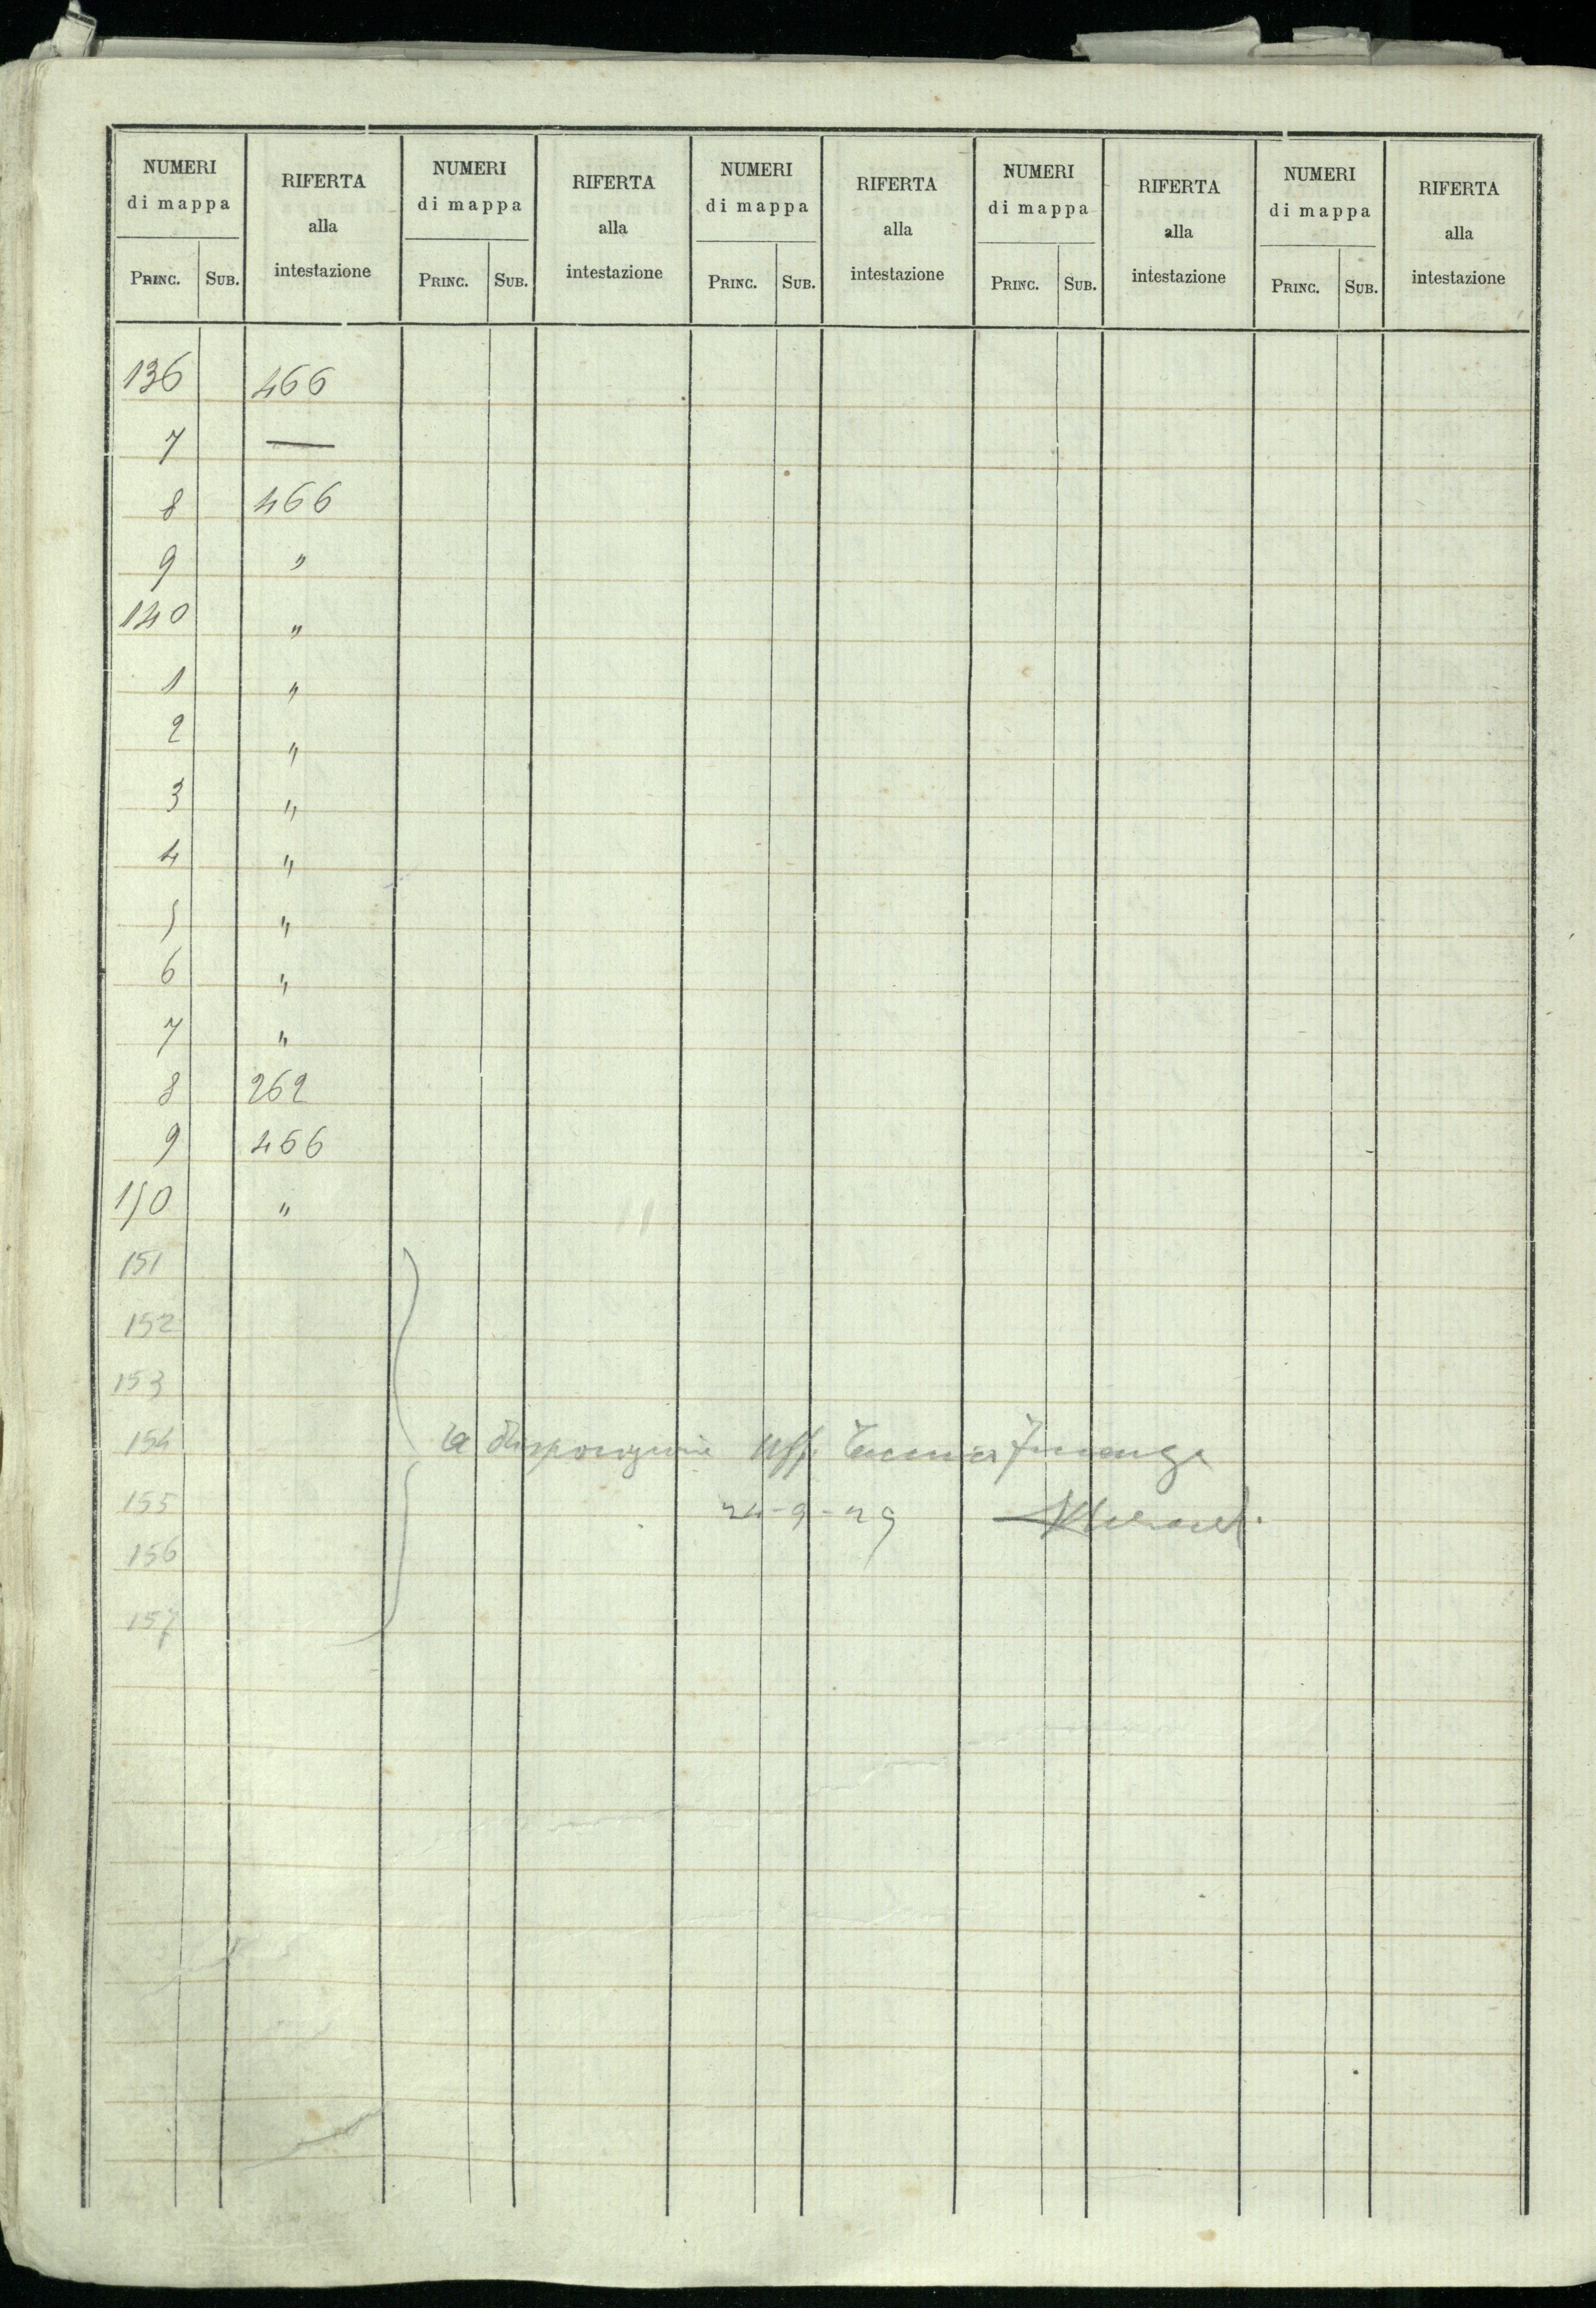 NUMERI RIFERTA NUMERI RIFERTA NUMERI RIFERTA NUMERI RIFERTA NUMERI RIFERTA
di mappa alla di mappa alla di mappa alla di mappa alla di mappa alla
PRINC. SUB. intestazione PRINC. SUB. intestazione PRINC. SUB. intestazione PRINC. SUB. intestazione PRINC. SUB. intestazione
136 466
7 —
8 466
9 "
140 "
1 "
2 "
3 "
4 "
5 "
6 "
7 "
8 262
9 466
150 "
151
152
153
154 a disposizione Uff. Finanza
155 24-9-29
156
157